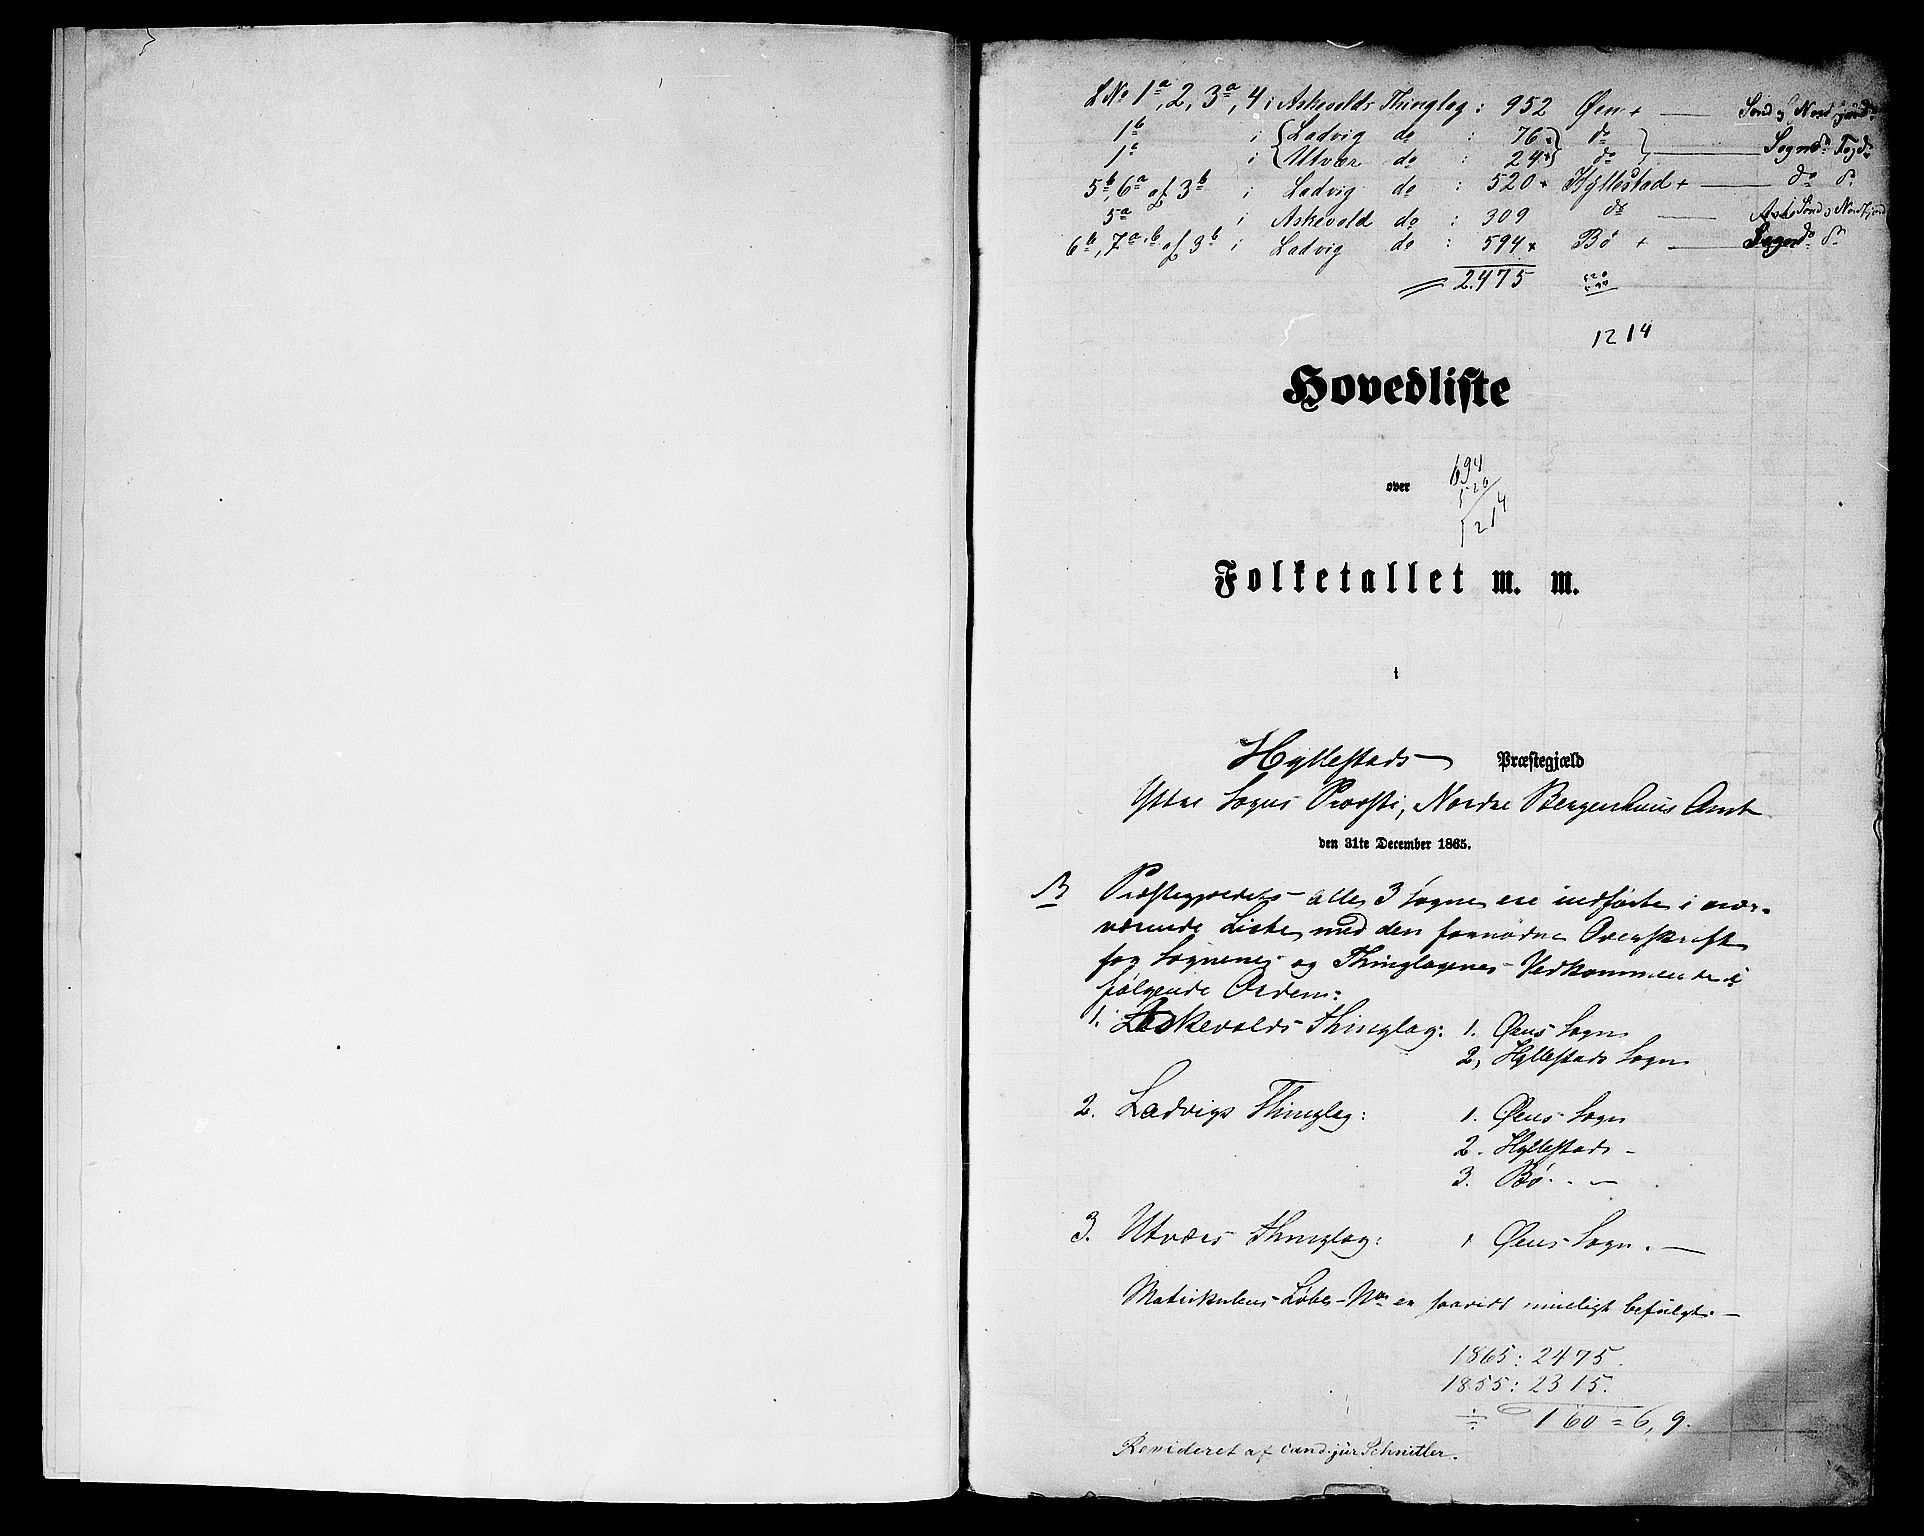 L No 1a, 2, 3a, 4 i Askevolds Thinglag : 952 Øen + — Sønd og Nordfjord
1b i Ladvig do : 76 do
1c i Utvær do : 24 do — Sogns Fogd
5b, 6a af 3b i Ladvig do : 520 Hyllestad + — do do
5a i Askevold do : 309 do — Sønd og Nordfjord
6b, 7a, b af 3b i Ladvig do : 594 Bø + — Sogns do
2475
1214
Hovedliste
over
694
520
1214
Folketallet m. m.
i
Hyllestads Præstegjæld
Yttre Sogns Provsti, Nordre Bergenhuus Amt
den 31te December 1865.
Præstegjældets alle 3 Sogne ere indførte i nær-
værende Liste, med den fornødne Overskrift
for Sognenes og Thinglagenes Vedkommende i
følgende Orden:
1. Askevolds Thinglag: 1. Øens Sogn
2, Hyllestads Sogn
2. Ladvigs Thinglag: 1. Øens Sogn
2. Hyllestads -
3. Bø - -
3. Utværs Thinglag: 1 Øens Sogn. —
Matrikulens Løbe-Noe er saavidt mueligt befulgt. —
1865: 2475.
1855: 2315.
÷ 160 = 6,9.
Revideret af cand. jur Schnitler.